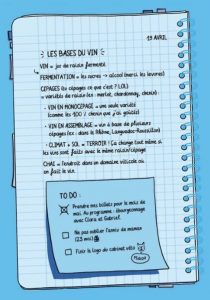 19 AVRIL
LES BASES DU VIN
VIN = jus de raisin fermenté
FERMENTATION = les sucres → alcool (merci les levures)
CÉPAGES (ou cépages ce que c'est ? LOL)
= variétés de raisin (ex : merlot, chardonnay, chenin).
- VIN EN MONOCÉPAGE = une seule variété
(comme les 100 % chenin que j'ai goûtés)
- VIN EN ASSEMBLAGE = vin à base de plusieurs
cépages (ex : dans le Rhône, Languedoc-Roussillon)
- CLIMAT + SOL = TERROIR ! Ça change tout même si
les vins sont faits avec le même raisin/cépage
CHAI = l'endroit dans un domaine viticole où
on fait le vin.
TO DO :
Prendre mes billets pour le mois de
mai. Au programme : ébourgeonnage
avec Clara et Gabriel.
Ne pas oublier l'anniv de maman
(23 mai)
Finir le logo du cabinet véto
Miaou